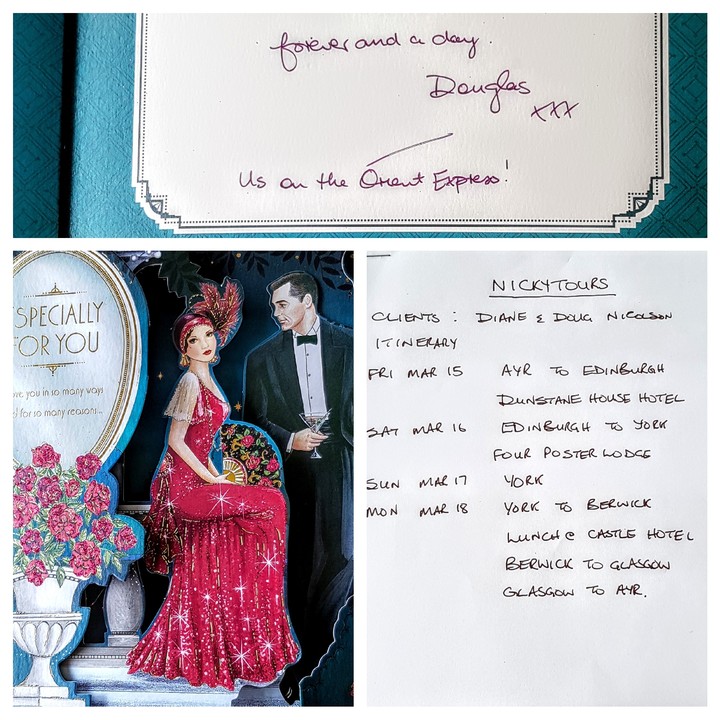 forever and a day.
Douglas
xxx
Us on the Orient Express!
SPECIALLY
FOR YOU
ve you in so many ways
for so many reasons...
NICKYTOURS
CLIENTS : DIANE & DOUG NICOLSON
ITINERARY
FRI MAR 15 AYR TO EDINBURGH
DUNSTANE HOUSE HOTEL
SAT MAR 16 EDINBURGH TO YORK
FOUR POSTER LODGE
SUN MAR 17 YORK
MON MAR 18 YORK TO BERWICK
LUNCH @ CASTLE HOTEL
BERWICK TO GLASGOW
GLASGOW TO AYR.